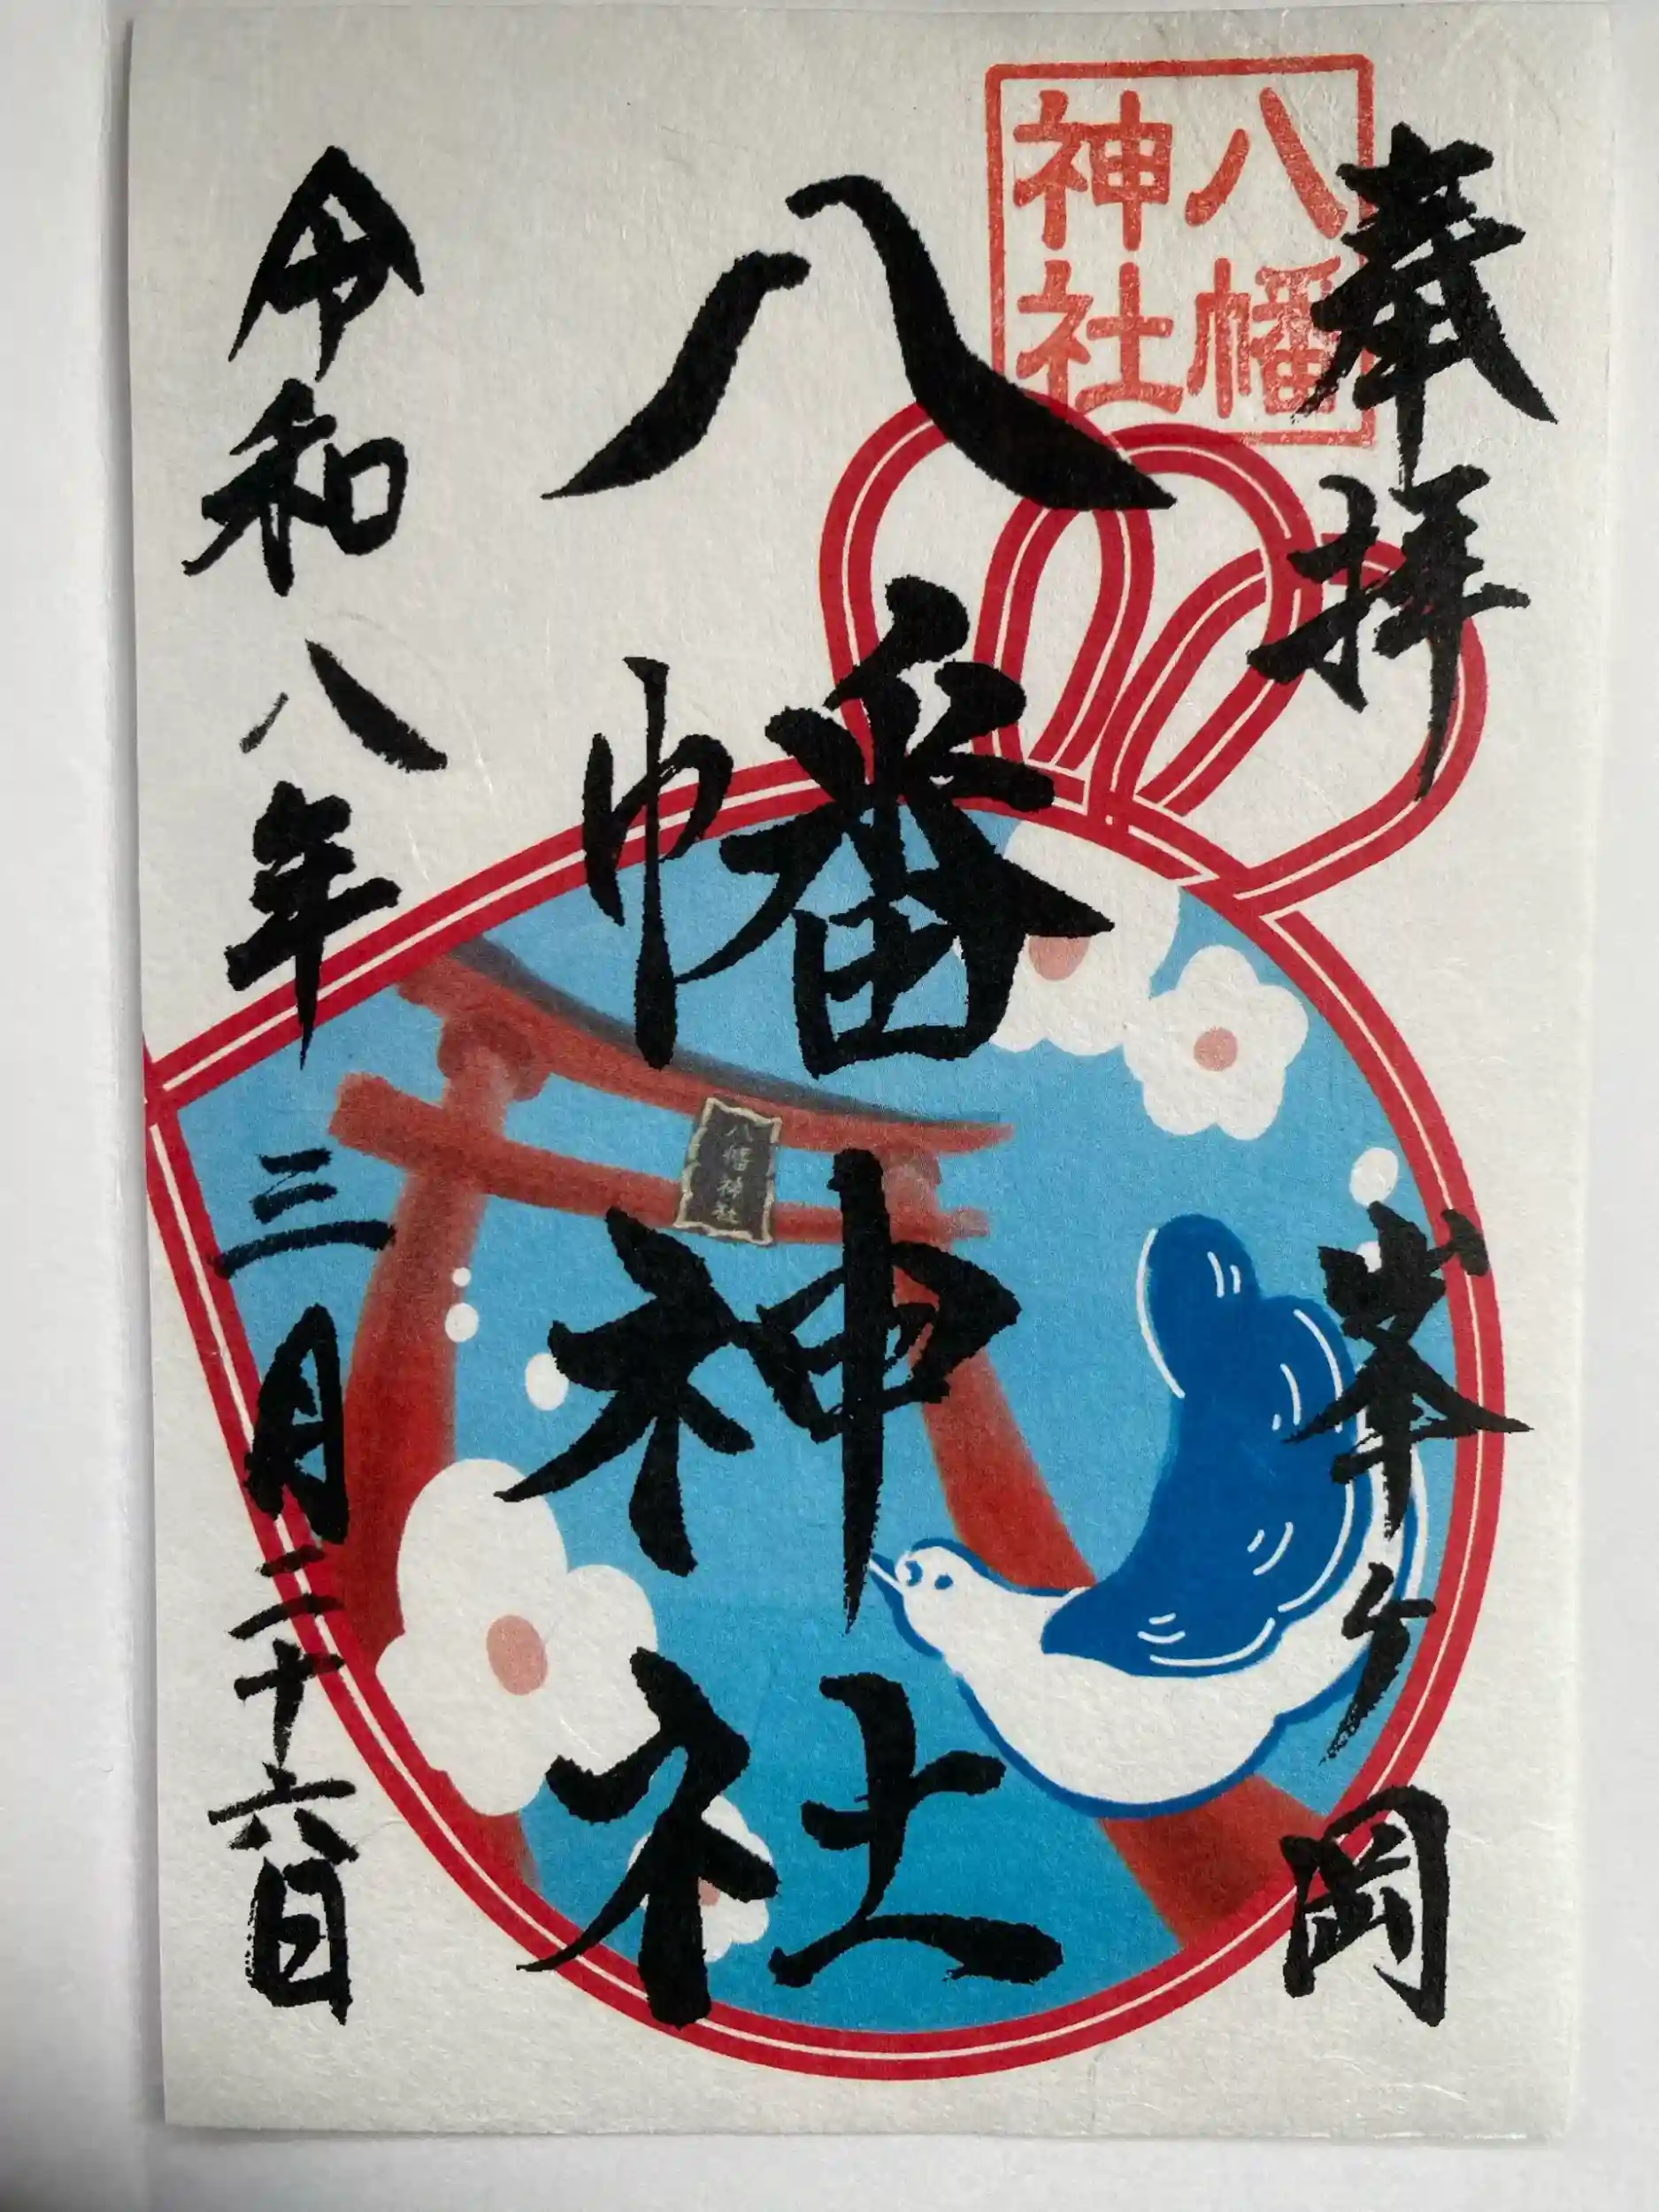 奉拝
峯ヶ岡
八幡
神社
八幡神社
八幡神社
令和八年
三月二十六日